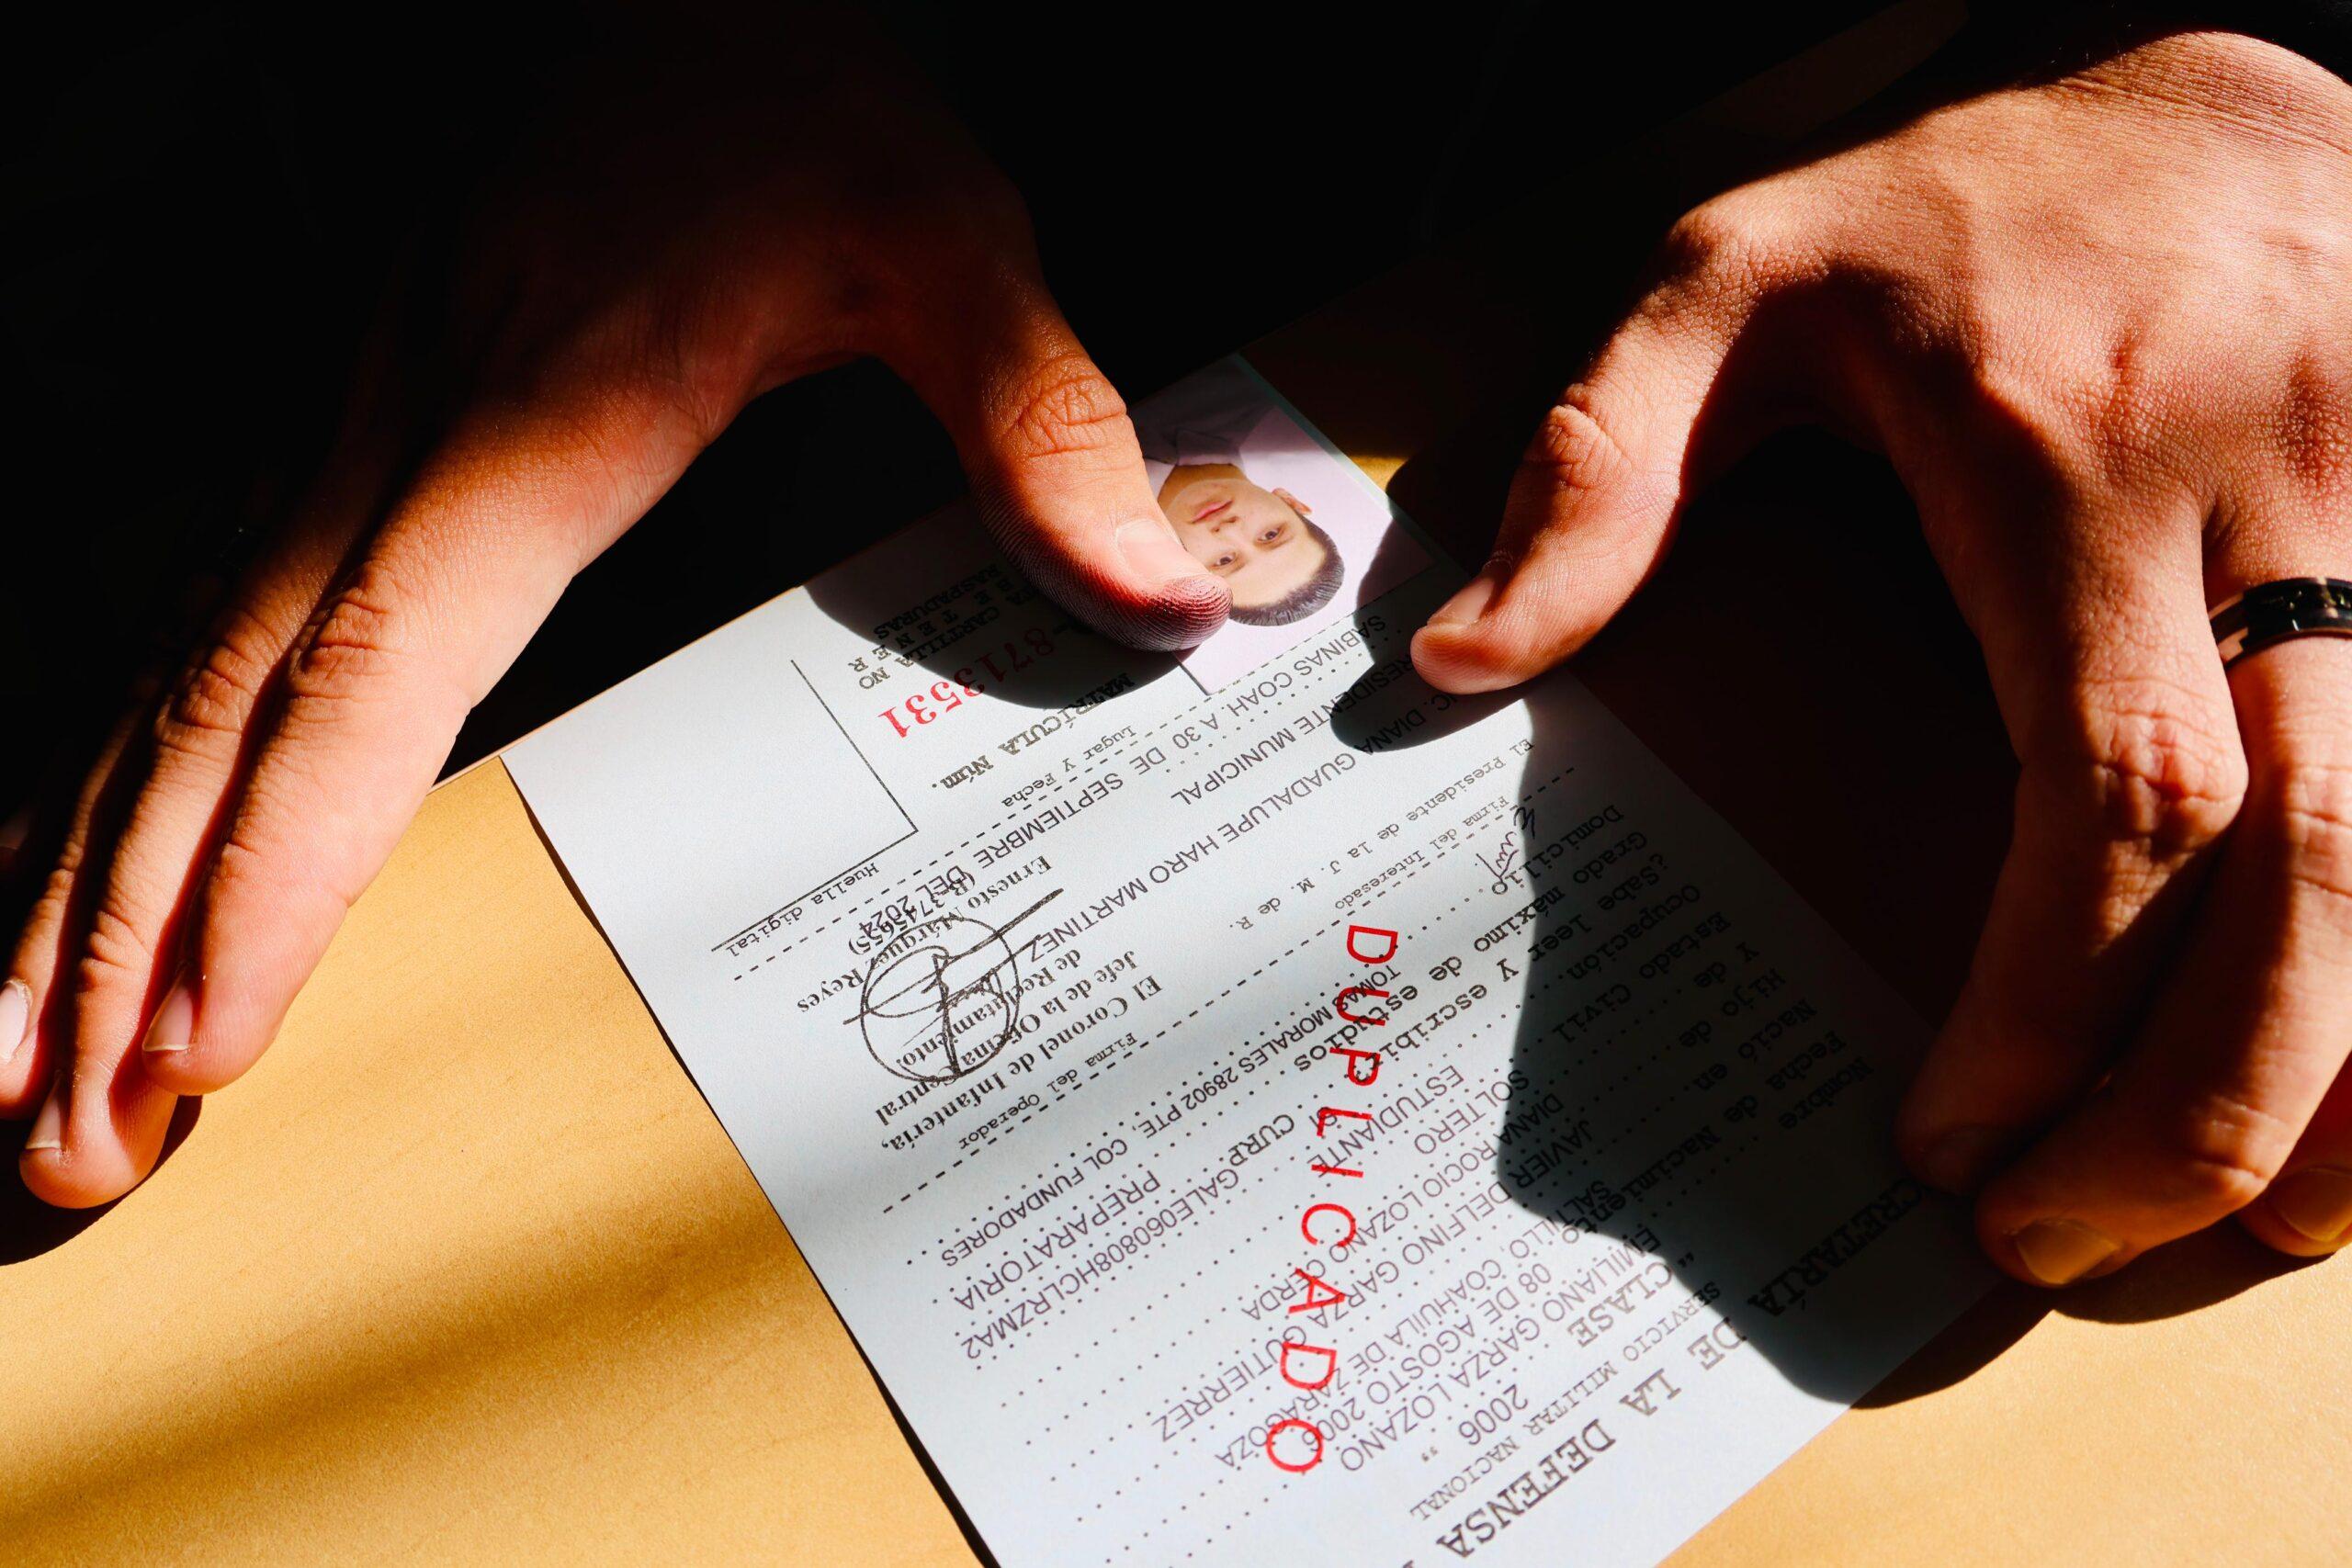 CRETARÍA DE LA DEFENSA
SERVICIO MILITAR NACIONAL
CLASE “ 2006 ”
Nombre EMILIANO GARZA LOZANO
Fecha de Nacimiento 08 DE AGOSTO 2006
Nació en SALTILLO, COAHUILA DE ZARAGOZA
Hijo de JAVIER DELFINO GARZA GUTIERREZ
Y de DIANA ROCIO LOZANO CERDA
Estado Civil SOLTERO
Ocupación ESTUDIANTE
¿Sabe leer y escribir? SI CURP. GALE060808HCLRZMA2
Grado máximo de estudios PREPARATORIA
Domicilio TOMAS MORALES 28902 PTE, COL FUNDADORES
DUPLICADO
Firma del Interesado
Firma del Operador
El Presidente de la J. M. de R.
El Coronel de Infantería,
Jefe de la Oficina Central
de Reclutamiento,
Ernesto Márquez Reyes
(B-3745655)
DIANA GUADALUPE HARO MARTINEZ
PRESIDENTE MUNICIPAL
SABINAS COAH. A 30 DE SEPTIEMBRE DEL 2024
Lugar Y Fecha
Huella digital
MATRÍCULA Núm.
8713531
CARTILLA NO
BE TENER
RASPADURAS